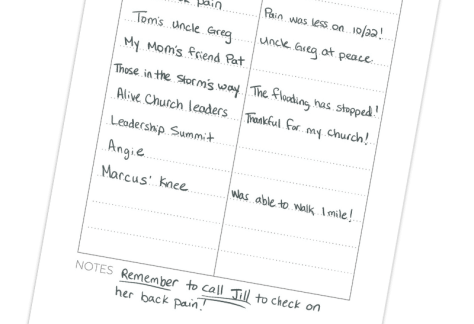 pain
Pain was less on 10/22!
Tom's uncle Greg
Uncle Greg at peace.
My Mom's friend Pat
Those in the storm's way
The flooding has stopped!
Alive Church leaders
Thankful for my church!
Leadership Summit
Angie
Marcus' Knee
Was able to walk 1 mile!
NOTES Remember to call Jill to check on
her back pain!